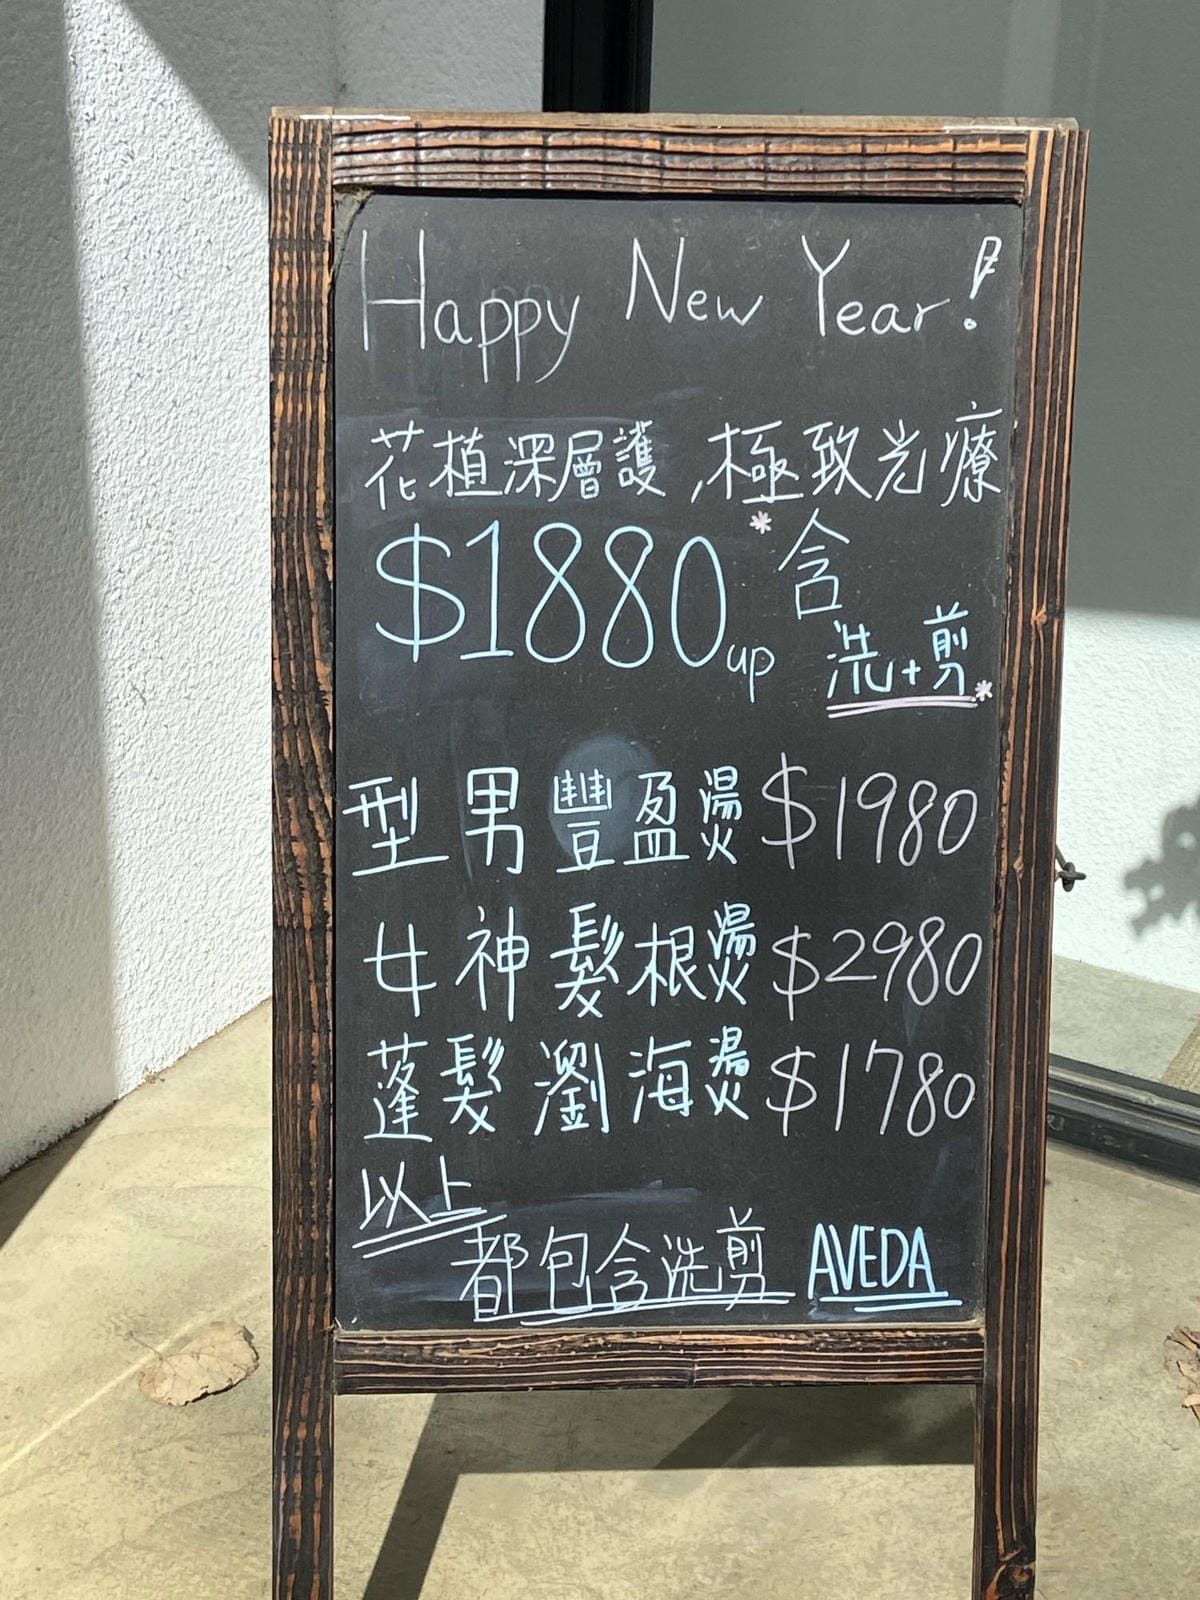 Happy New Year!
花植深層護,極致光療
$1880up *含
洗+剪*
型男豐盈燙 $1980
女神髮根燙 $2980
蓬髮瀏海燙 $1780
以上
都包含洗剪 AVEDA